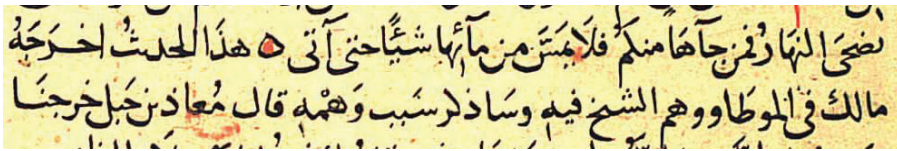 يضحى النهار فمن جآها منكم فلا يمسن من مآئها شئًا حتى آتى ه هذا الحديث اخرجه
مالك فى الموطا ووهم الشيخ فيه وساذكر سبب وهمه قال معاذ بن جبل خرجنا